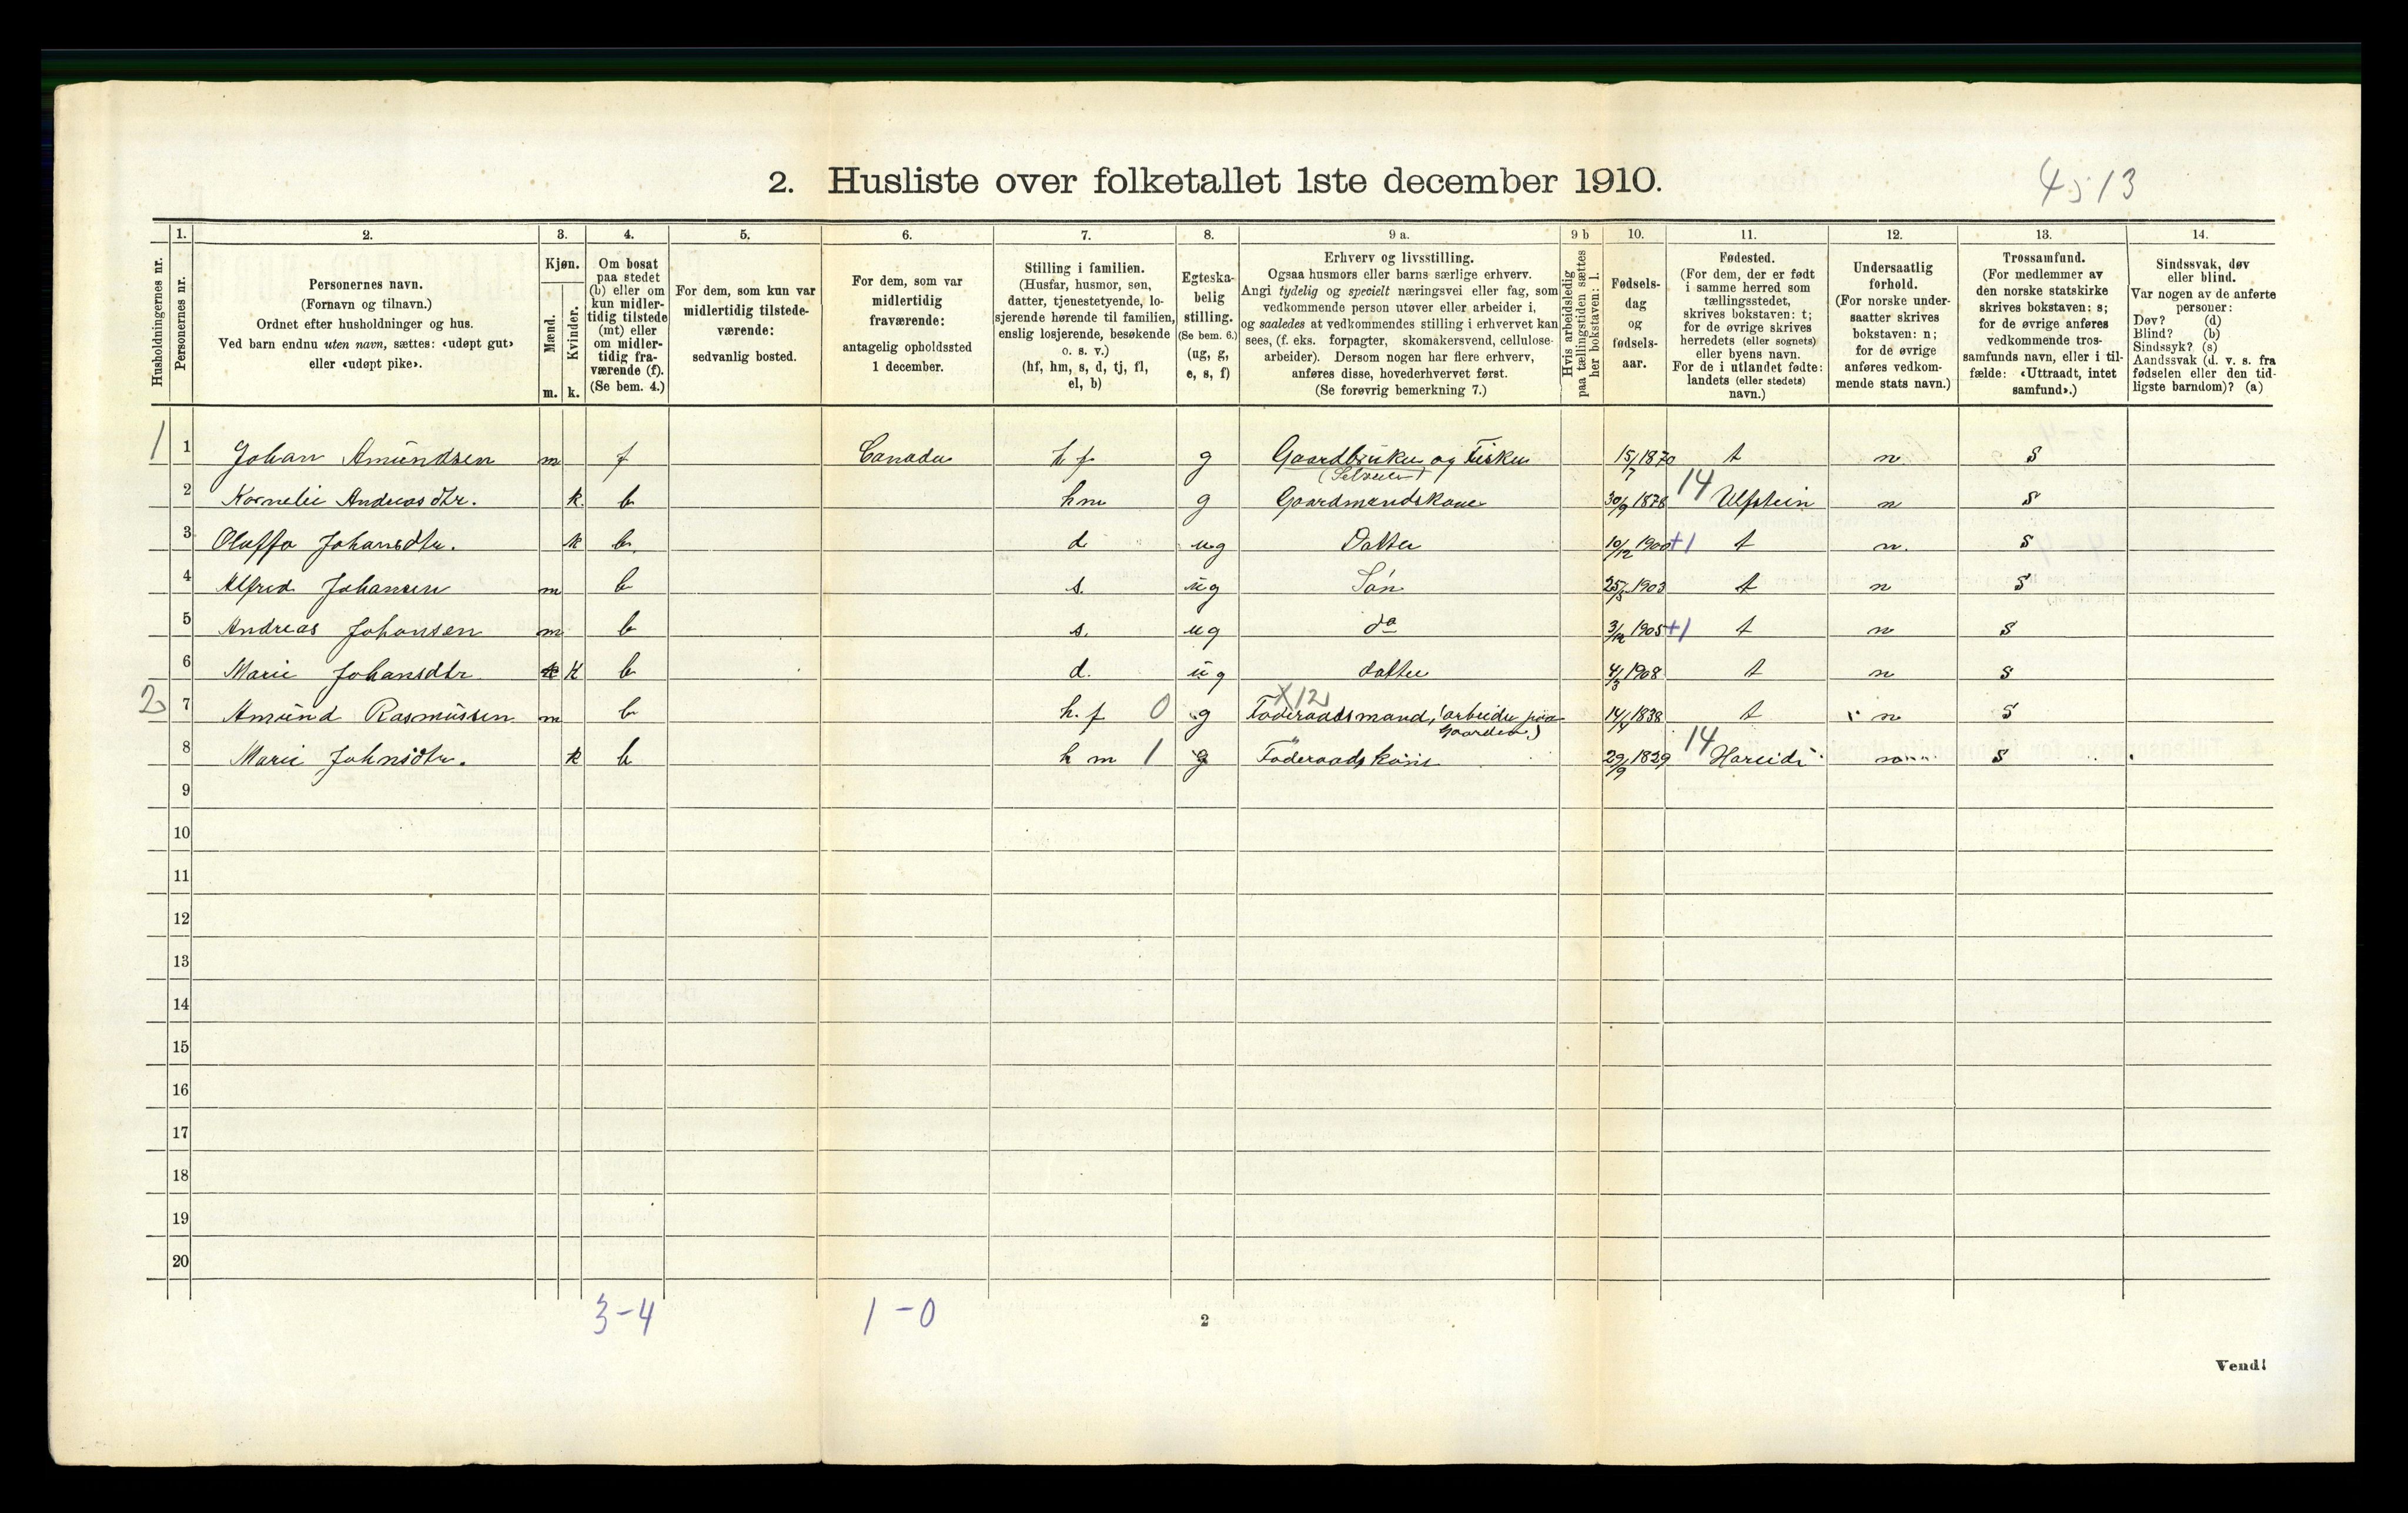 2. Husliste over folketallet 1ste december 1910.
4 5 13
Husholdningernes nr.
1.
Personernes nr.
2.
Personernes navn.
(Fornavn og tilnavn.)
Ordnet efter husholdninger og hus.
Ved barn endnu uten navn, sættes: «udøpt gut»
eller «udøpt pike».
3.
Kjøn.
Mænd.
Kvinder.
m. k.
4.
Om bosat
paa stedet
(b) eller om
kun midler-
tidig tilstede
(mt) eller
om midler-
tidig fra-
værende (f).
(Se bem. 4.)
5.
For dem, som kun var
midlertidig tilstede-
værende:
sedvanlig bosted.
6.
For dem, som var
midlertidig
fraværende:
antagelig opholdssted
1 december.
7.
Stilling i familien.
(Husfar, husmor, søn,
datter, tjenestetyende, lo-
sjerende hørende til familien,
enslig losjerende, besøkende
o. s. v.)
(hf, hm, s, d, tj, fl,
el, b)
8.
Egteska-
belig
stilling.
(Se bem. 6.)
(ug, g,
e, s, f)
9 a.
Erhverv og livsstilling.
Ogsaa husmors eller barns særlige erhverv.
Angi tydelig og specielt næringsvei eller fag, som
vedkommende person utøver eller arbeider i,
og saaledes at vedkommendes stilling i erhvervet kan
sees, (f. eks. forpagter, skomakersvend, cellulose-
arbeider). Dersom nogen har flere erhverv,
anføres disse, hovederhvervet først.
(Se forøvrig bemerkning 7.)
9 b
Hvis arbeidsledig
paa tællingstiden sættes
her bokstaven: l.
10.
Fødsels-
dag
og
fødsels-
aar.
11.
Fødested.
(For dem, der er født
i samme herred som
tællingsstedet,
skrives bokstaven: t;
for de øvrige skrives
herredets (eller sognets)
eller byens navn.
For de i utlandet fødte:
landets (eller stedets)
navn.)
12.
Undersaatlig
forhold.
(For norske under-
saatter skrives
bokstaven: n;
for de øvrige
anføres vedkom-
mende stats navn.)
13.
Trossamfund.
(For medlemmer av
den norske statskirke
skrives bokstaven: s;
for de øvrige anføres
vedkommende tros-
samfunds navn, eller i til-
fælde: «Uttraadt, intet
samfund».)
14.
Sindssvak, døv
eller blind.
Var nogen av de anførte
personer:
Døv? (d)
Blind? (b)
Sindssyk? (s)
Aandssvak (d. v. s. fra
fødselen eller den tid-
ligste barndom)? (a)
1 1 Johan Amundsen m f Canada hf g Gaardbruker og Fisker (Selveier) 15/7 1870 t n s
2 Kornelie Andreasdtr. k b hm g Gaardmandskone 30/9 1878 14 Ulfstein n s
3 Oluffa Johansdtr. k b d ug Datter 10/12 1900 +1 t n. s
4 Alfred Johansen m b s. ug Søn 25/5 1903 t n s
5 Andreas Johansen m b s. ug do 3/12 1905 +1 t n s
6 Marie Johansdtr k b d. ug datter 4/3 1908 t n s
2 7 Amund Rasmussen m b h.f 0 g X 12 Føderaadsmand, (arbeider paa Gaarden) 14/4 1838 t n s
8 Marie Johnsdtr. k b hm 1 g Føderaadskone 29/9 1829 14 Hareid n s
9
10
11
12
13
14
15
16
17
18
19
20
3-4 1-0
2
Vend!